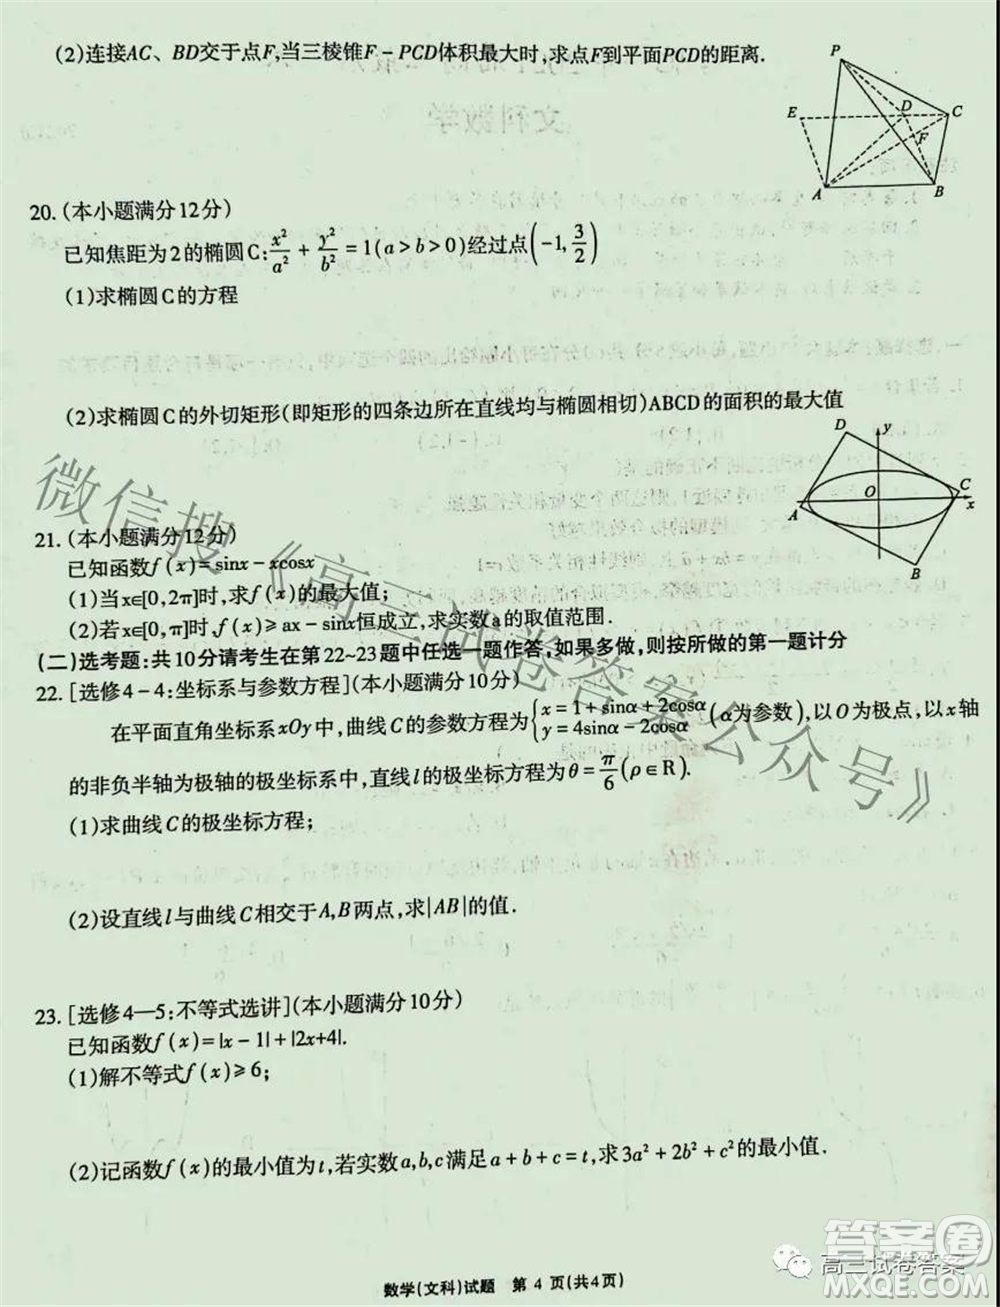 (2)连接AC、BD交于点F,当三棱锥F-PCD体积最大时,求点F到平面PCD的距离.
P
E
D
C
F
A
B
20.(本小题满分12分)
已知焦距为2的椭圆C:x²/a²+y²/b²=1(a>b>0)经过点(-1,3/2)
(1)求椭圆C的方程
(2)求椭圆C的外切矩形(即矩形的四条边所在直线均与椭圆相切)ABCD的面积的最大值
D
y
O
C
x
A
B
21.(本小题满分12分)
已知函数f(x)=sinx-xcosx
(1)当x∈[0,2π]时,求f(x)的最大值;
(2)若x∈[0,π]时,f(x)⩾ax-sinx恒成立,求实数a的取值范围.
(二)选考题:共10分请考生在第22~23题中任选一题作答,如果多做,则按所做的第一题计分
22.[选修4-4:坐标系与参数方程](本小题满分10分)
在平面直角坐标系xOy中,曲线C的参数方程为{x=1+sinα+2cosα y=4sinα-2cosα(α为参数),以O为极点,以x轴
的非负半轴为极轴的极坐标系中,直线l的极坐标方程为θ=π/6(ρ∈R).
(1)求曲线C的极坐标方程;
(2)设直线l与曲线C相交于A,B两点,求|AB|的值.
23.[选修4—5:不等式选讲](本小题满分10分)
已知函数f(x)=|x-1|+|2x+4|.
(1)解不等式f(x)⩾6;
(2)记函数f(x)的最小值为t,若实数a,b,c满足a+b+c=t,求3a²+2b²+c²的最小值.
数学(文科)试题 第4页(共4页)
微信搜《高三试卷答案公众号》
高三试卷答案
答案圈
MXQE.COM